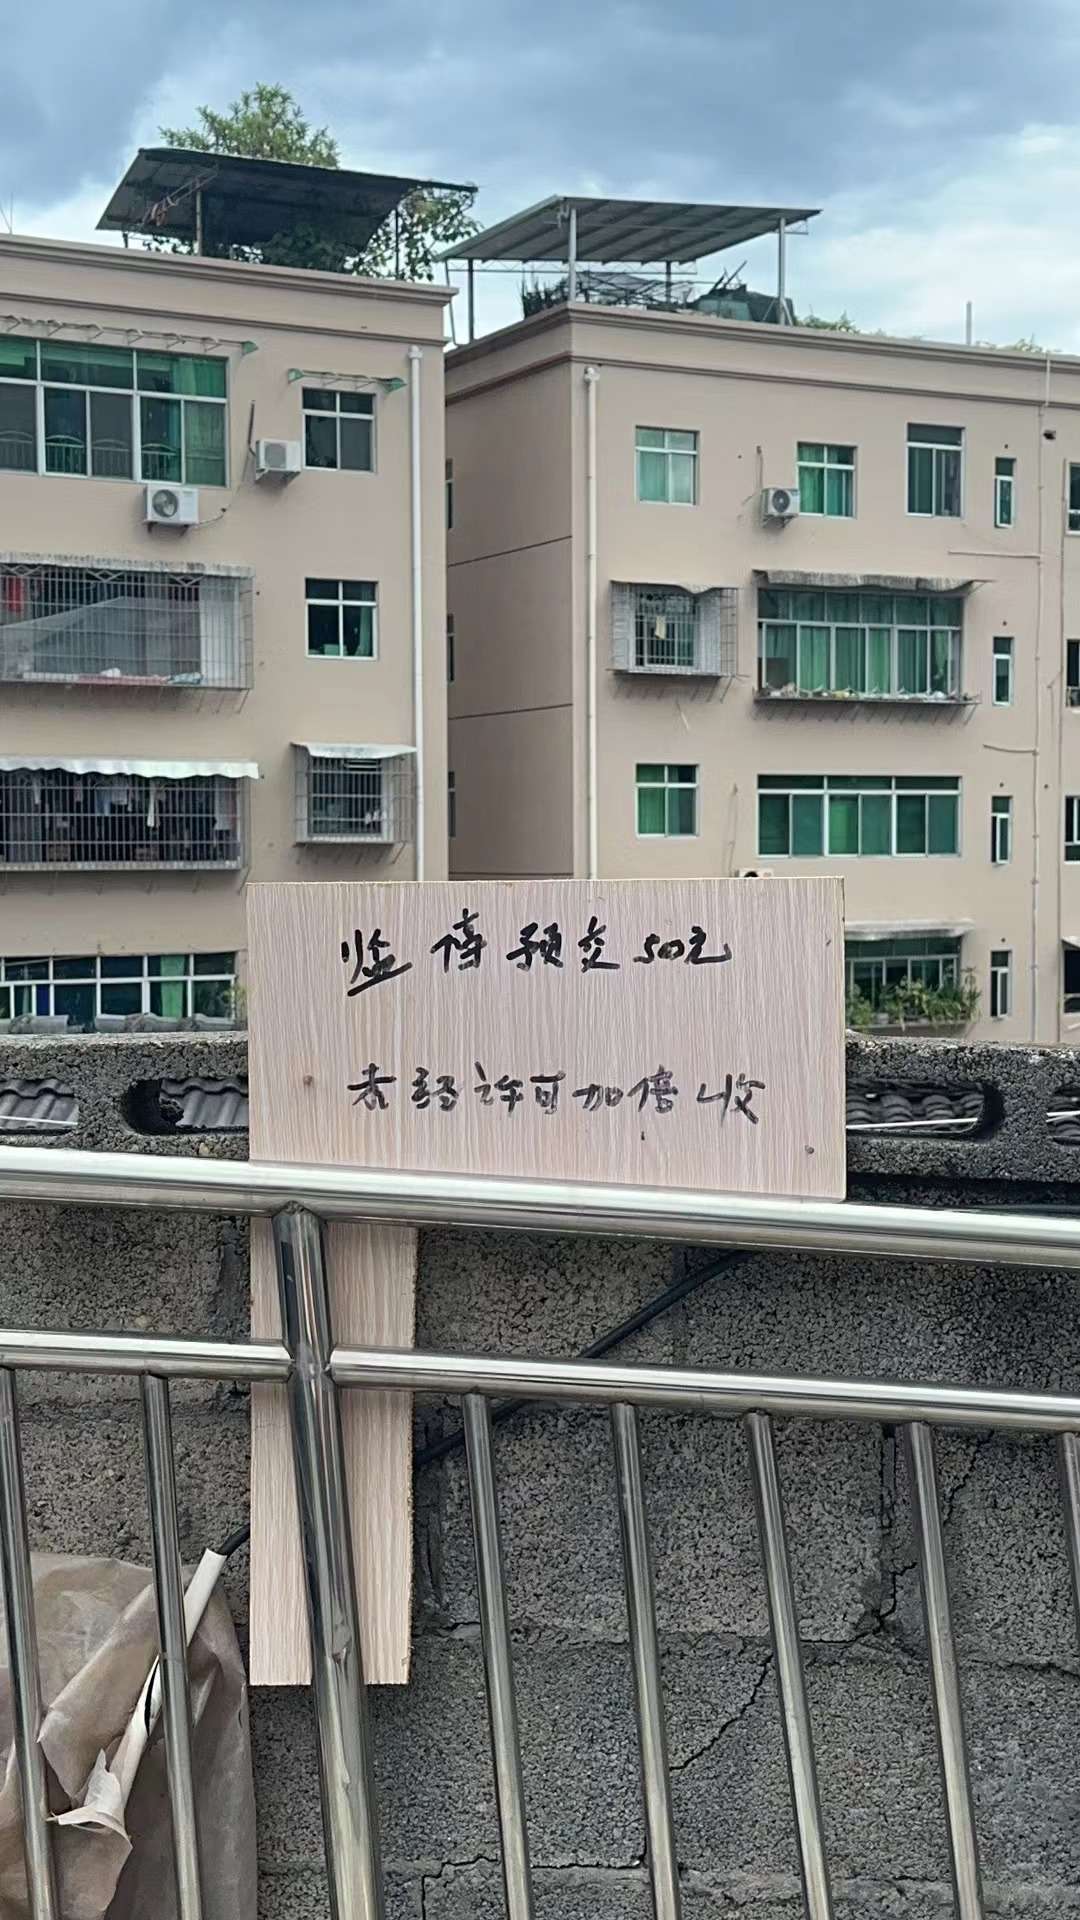 监停预交50元
未经许可加倍收